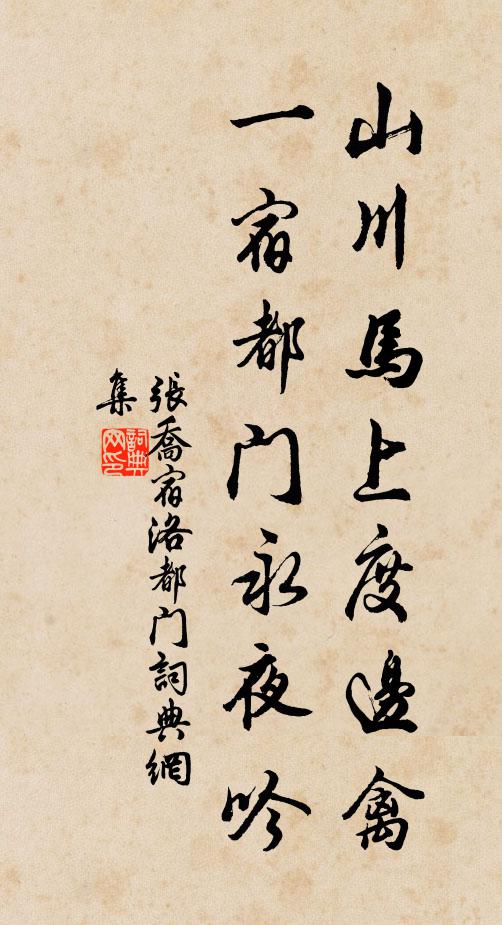 山川馬上度邊禽
一宿都门永夜吟
張喬宿洛都门詞典網
集
詞典
网印